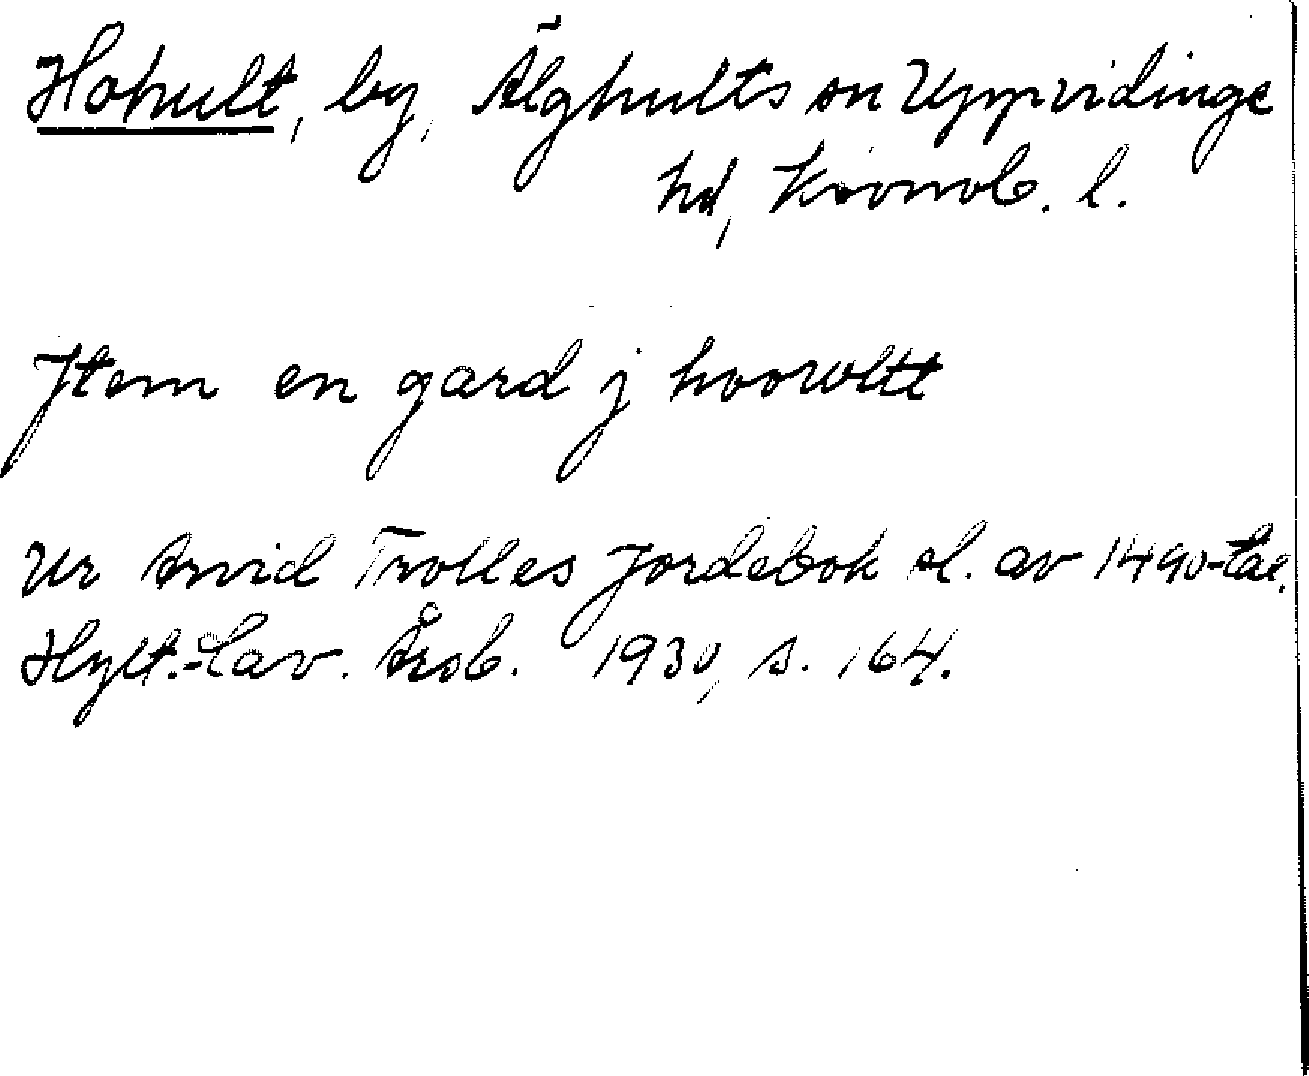 Hohult, by, Älghults sn Uppvidinge
hd, Kronob. l.
Jtem en gard j hoowltt
Ur Arvid Trolles Jordebok sl. av 1490-tal.
Hylt.-Cav. Årsb. 1930, s. 164.